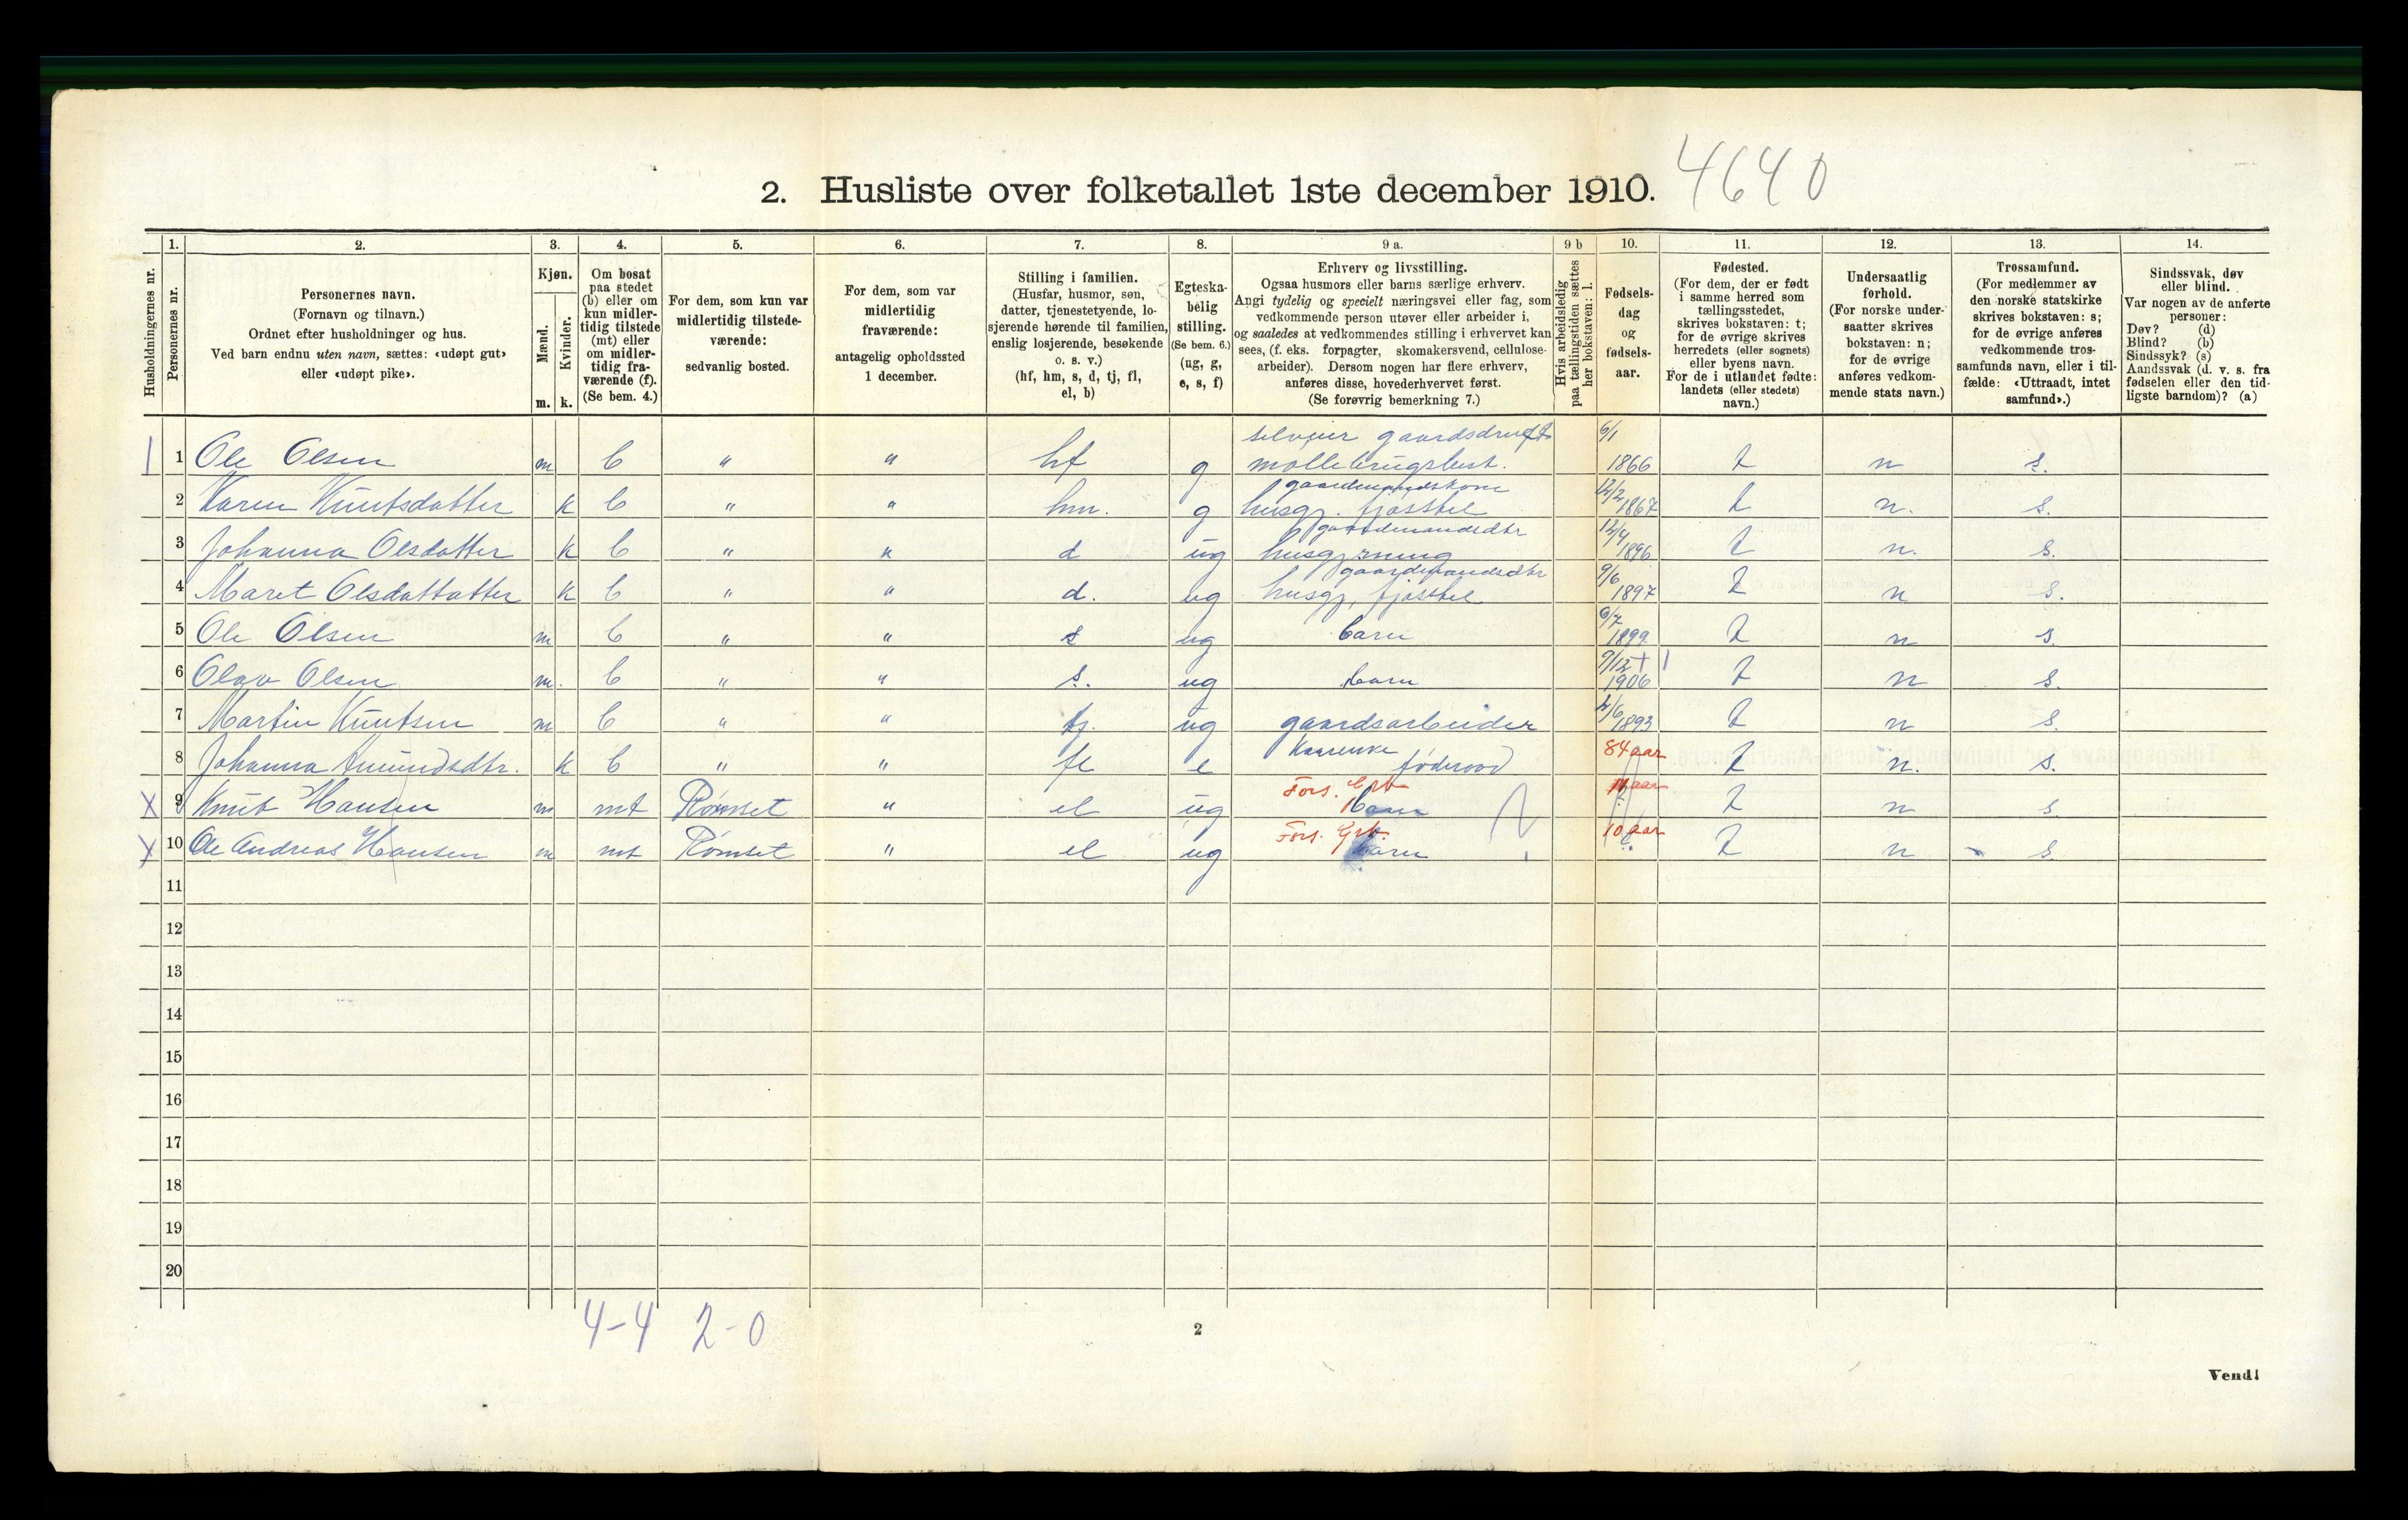 2. Husliste over folketallet 1ste december 1910. 4640
1. 2. 3. 4. 5. 6. 7. 8. 9 a. 9 b 10. 11. 12. 13. 14.
Husholdningernes nr.
Personernes nr.
Personernes navn.
(Fornavn og tilnavn.)
Ordnet efter husholdninger og hus.
Ved barn endnu uten navn, sættes: «udøpt gut»
eller «udøpt pike».
Kjøn.
Mænd.
Kvinder.
m. k.
Om bosat
paa stedet
(b) eller om
kun midler-
tidig tilstede
(mt) eller
om midler-
tidig fra-
værende (f).
(Se bem. 4.)
For dem, som kun var
midlertidig tilstede-
værende:
sedvanlig bosted.
For dem, som var
midlertidig
fraværende:
antagelig opholdssted
1 december.
Stilling i familien.
(Husfar, husmor, søn,
datter, tjenestetyende, lo-
sjerende hørende til familien,
enslig losjerende, besøkende
o. s. v.)
(hf, hm, s, d, tj, fl,
el, b)
Egteska-
belig
stilling.
(Se bem. 6.)
(ug, g,
e, s, f)
Erhverv og livsstilling.
Ogsaa husmors eller barns særlige erhverv.
Angi tydelig og specielt næringsvei eller fag, som
vedkommende person utøver eller arbeider i,
og saaledes at vedkommendes stilling i erhvervet kan
sees, (f. eks. forpagter, skomakersvend, cellulose-
arbeider). Dersom nogen har flere erhverv,
anføres disse, hovederhvervet først.
(Se forøvrig bemerkning 7.)
Hvis arbeidsledig
paa tællingstiden sættes
her bokstaven: l.
Fødsels-
dag
og
fødsels-
aar.
Fødested.
(For dem, der er født
i samme herred som
tællingsstedet,
skrives bokstaven: t;
for de øvrige skrives
herredets (eller sognets)
eller byens navn.
For de i utlandet fødte:
landets (eller stedets)
navn.)
Undersaatlig
forhold.
(For norske under-
saatter skrives
bokstaven: n;
for de øvrige
anføres vedkom-
mende stats navn.)
Trossamfund.
(For medlemmer av
den norske statskirke
skrives bokstaven: s;
for de øvrige anføres
vedkommende tros-
samfunds navn, eller i til-
fælde: «Uttraadt, intet
samfund».)
Sindssvak, døv
eller blind.
Var nogen av de anførte
personer:
Døv? (d)
Blind? (b)
Sindssyk? (s)
Aandssvak (d. v. s. fra
fødselen eller den tid-
ligste barndom)? (a)
selveier gaardsdrift 6/1
1 Ole Olsen m b " " hf g møllebrugsbest. 1866 t n s.
gaardmandskone 12/2
2 Karen Knutsdatter k b " " hm. g husgj. fjøsstel 1867 t n. s.
gaardmandsdtr 12/4
3 Johanna Olsdatter k b " " d ug husgjerning 1896 t n. s.
gaardmandsdtr 9/6
4 Maret Olsdattatter k b " " d. ug husgj, fjøsstel 1897 t n s.
6/7
5 Ole Olsen m b " " s ug barn 1899 t n s
9/12 + 1
6 Olav Olsen m. b " " s. ug barn 1906 t n s.
7 Martin Knutsen m b " " tj. ug gaardsarbeider 4/6 1893 t n s.
Kaarenke 84 aar
8 Johanna Amundsdtr. k b " " fl e føderaad t n. s.
Fors. aar
X 9 Knut Hansen m mt Rømset " el ug barn t n s.
Fors. 10 aar
X 10 Ole Andreas Hansen m mt Rømset " el ug barn t n s
11
12
13
14
15
16
17
18
19
20
4-4 2-0
2
Vend!